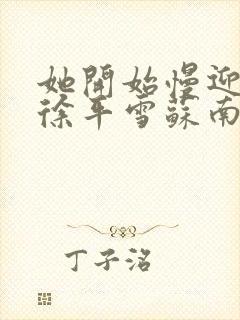 她開始慢迎
徐平雪蘇南
丁子洺